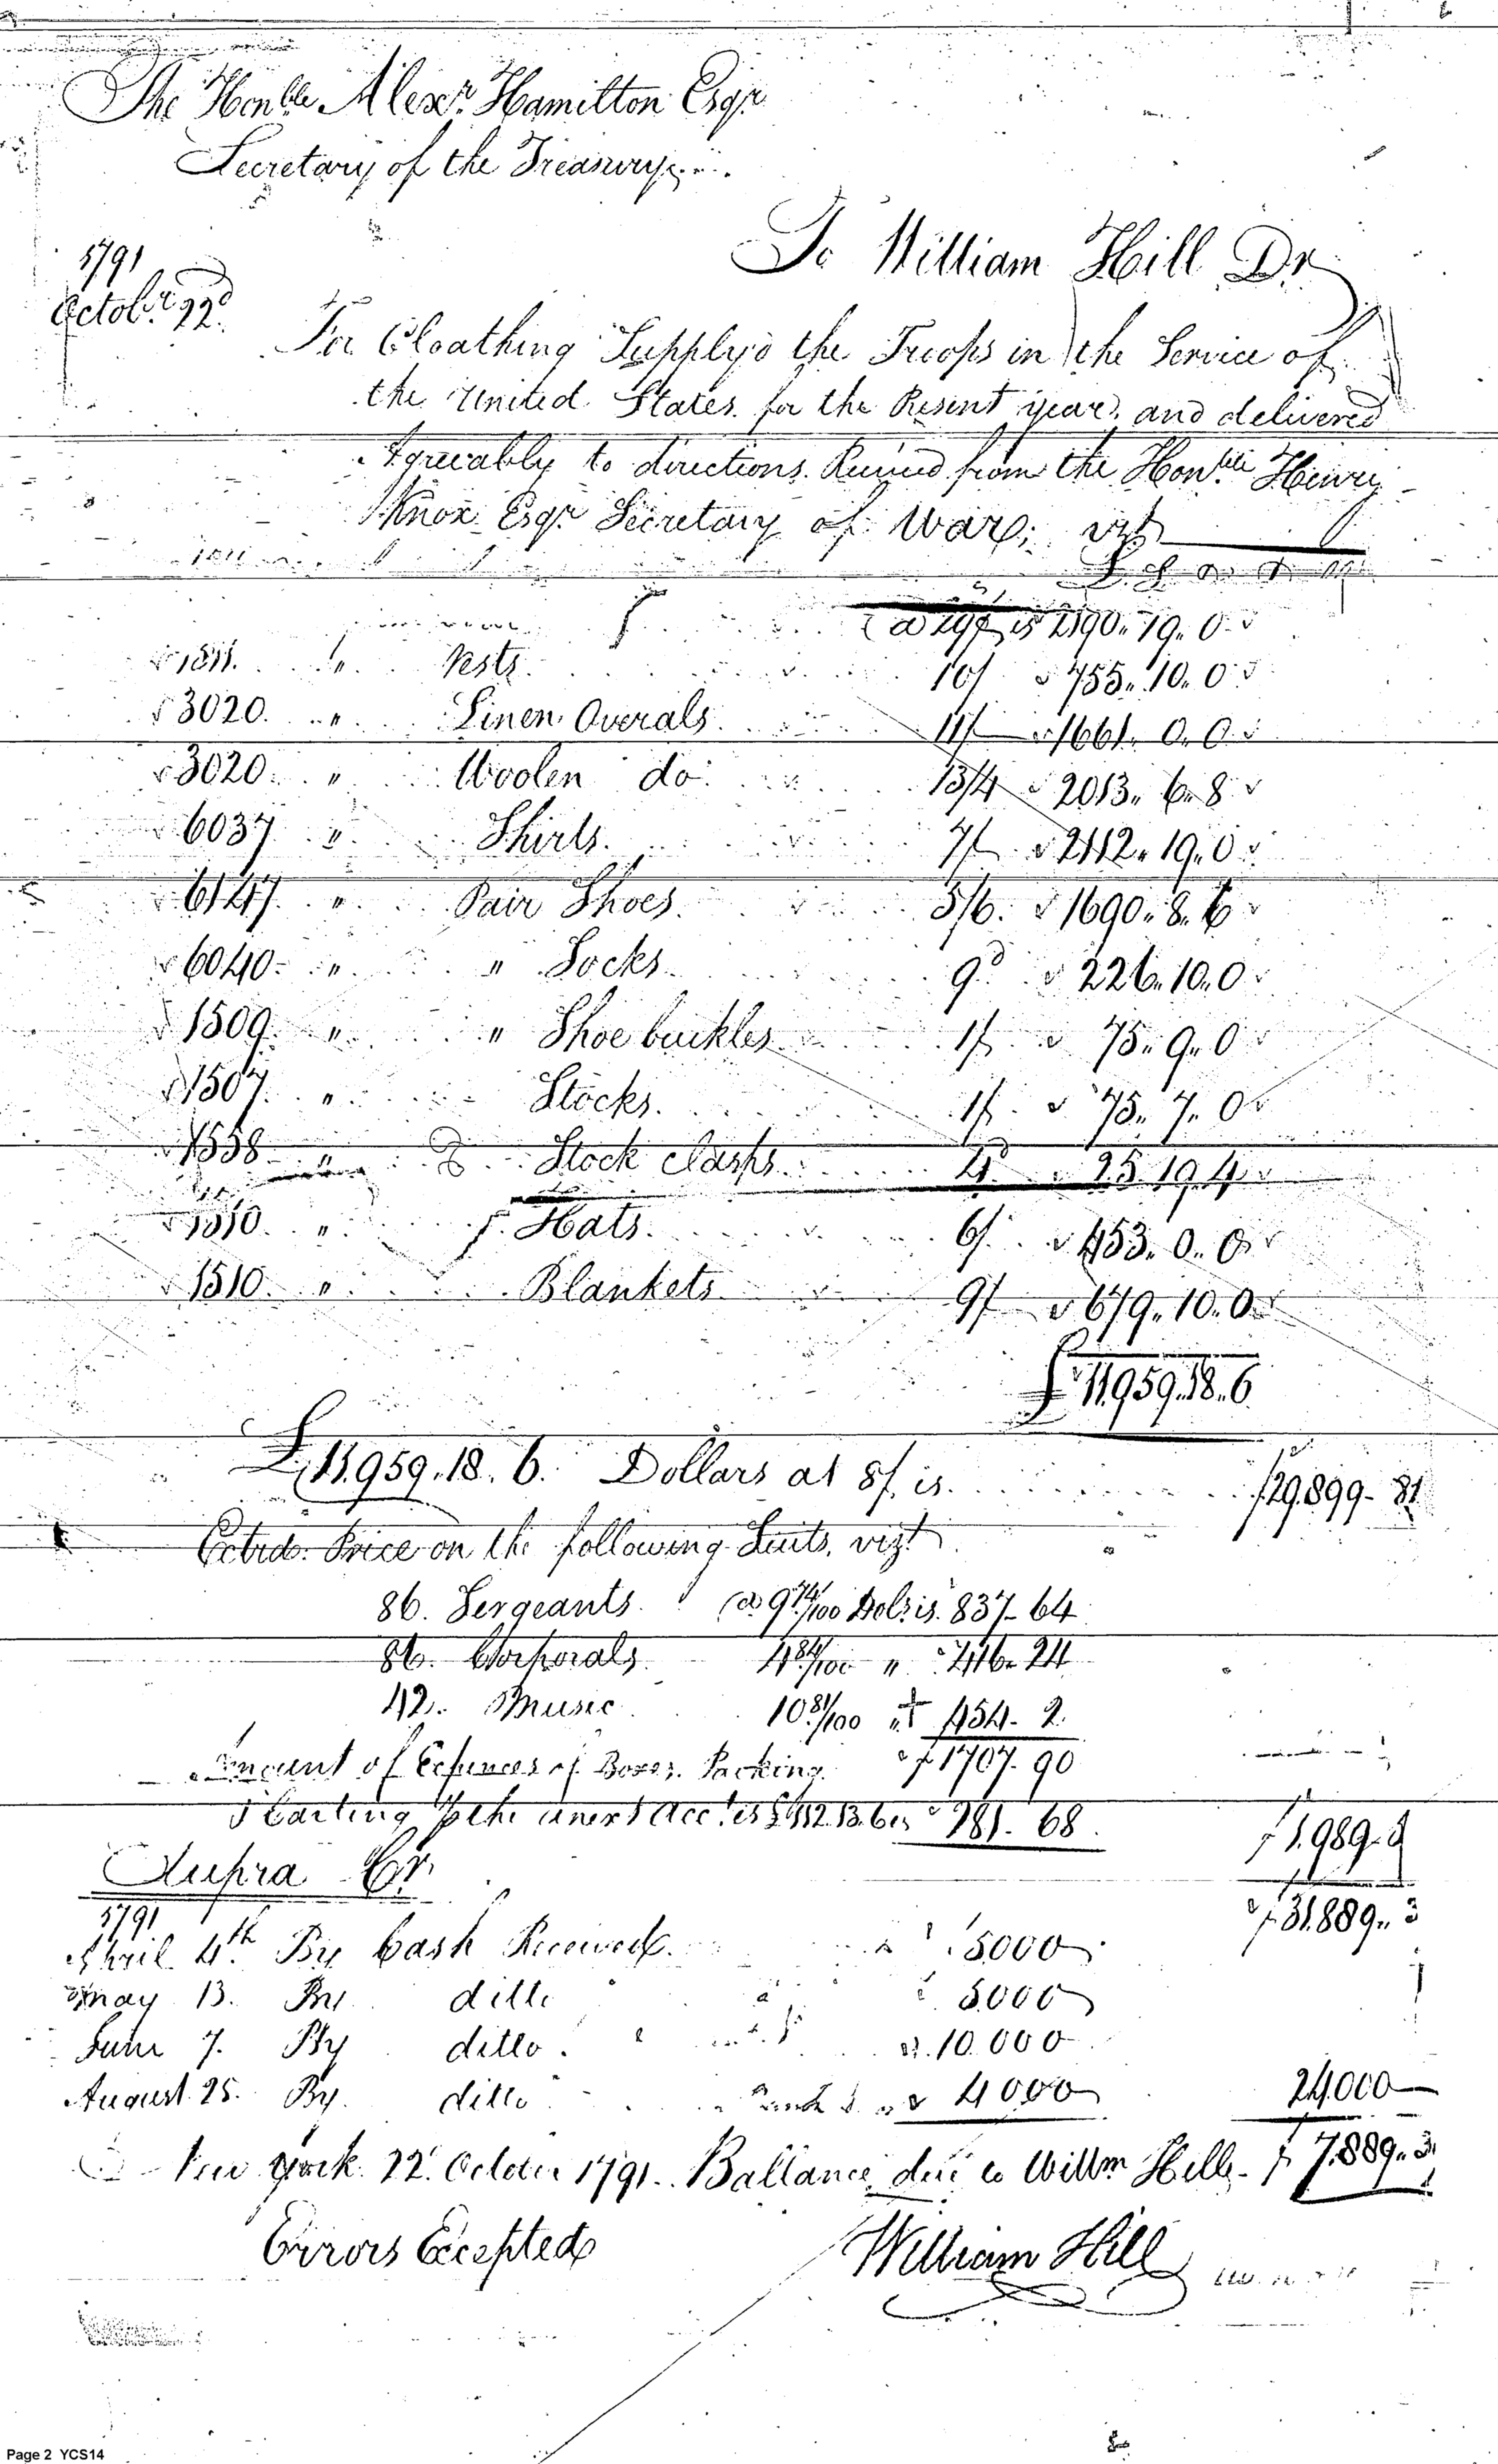 The Honble Alexr. Hamilton Esqr
Secretary of the Treasury
To William Hill Dr
1791
Octobr. 22d.
For Cloathing Supply'd the Troops in the Service of
the United States for the Present year, and delivered
Agreeably to directions Received from the Honble Henry
Knox Esqr Secretary of War; vizt
@ 29/ is 2190. 19. 0
1511. " Vests 10/ 755. 10. 0
3020. " Linen Overals 11/ 1661. 0. 0
3020. " Woolen do. 13/4 2013. 6. 8
6037 " Shirts 7/ 2112. 19. 0
6147. " Pair Shoes 5/6. 1690. 8. 6
6040. " " Socks 9d 226. 10. 0
1509. " " Shoe buckles 1/ 75. 9. 0
1507. " Stocks 1/ 75. 7. 0
1558 " Stock Clasps 4. 25. 19. 4
1510. " Hats 6/ 453. 0. 0
1510. " Blankets 9/ 679. 10. 0
£ 11959. 18. 6
£ 11,959. 18. 6. Dollars at 8/ is 29.899- 81
Extra Price on the following Suits, vizt
86. Sergeants @ 9 74/100 Dols. is 837- 64
86. Corporals 4 84/100 " 416- 24
42. Music 10 81/100 454- 2
1707. 90
Amount of Expences of Boxes. Packing
Carting &c the anex'd Acct. is £112. 13. 6 is 281. 68. 1.989.
Supra Cr. 31.889.. 3
1791
April 4th By Cash Received 5000
May 13. By ditto 5.000
June 7. By ditto 10.000
August 25. By ditto 4000 24.000
New York 22. October 1791. Ballance due to Willm Hill - 7.889.. 3
Errors Excepted
William Hill
Page 2 YCS14